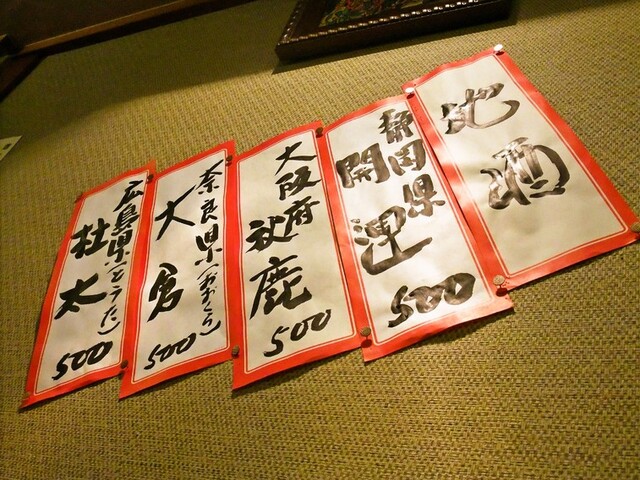 地酒
静岡県
開運
500
大阪府
秋鹿
500
奈良県(おおくら)
大倉
500
広島県(とうた)
杜太
500